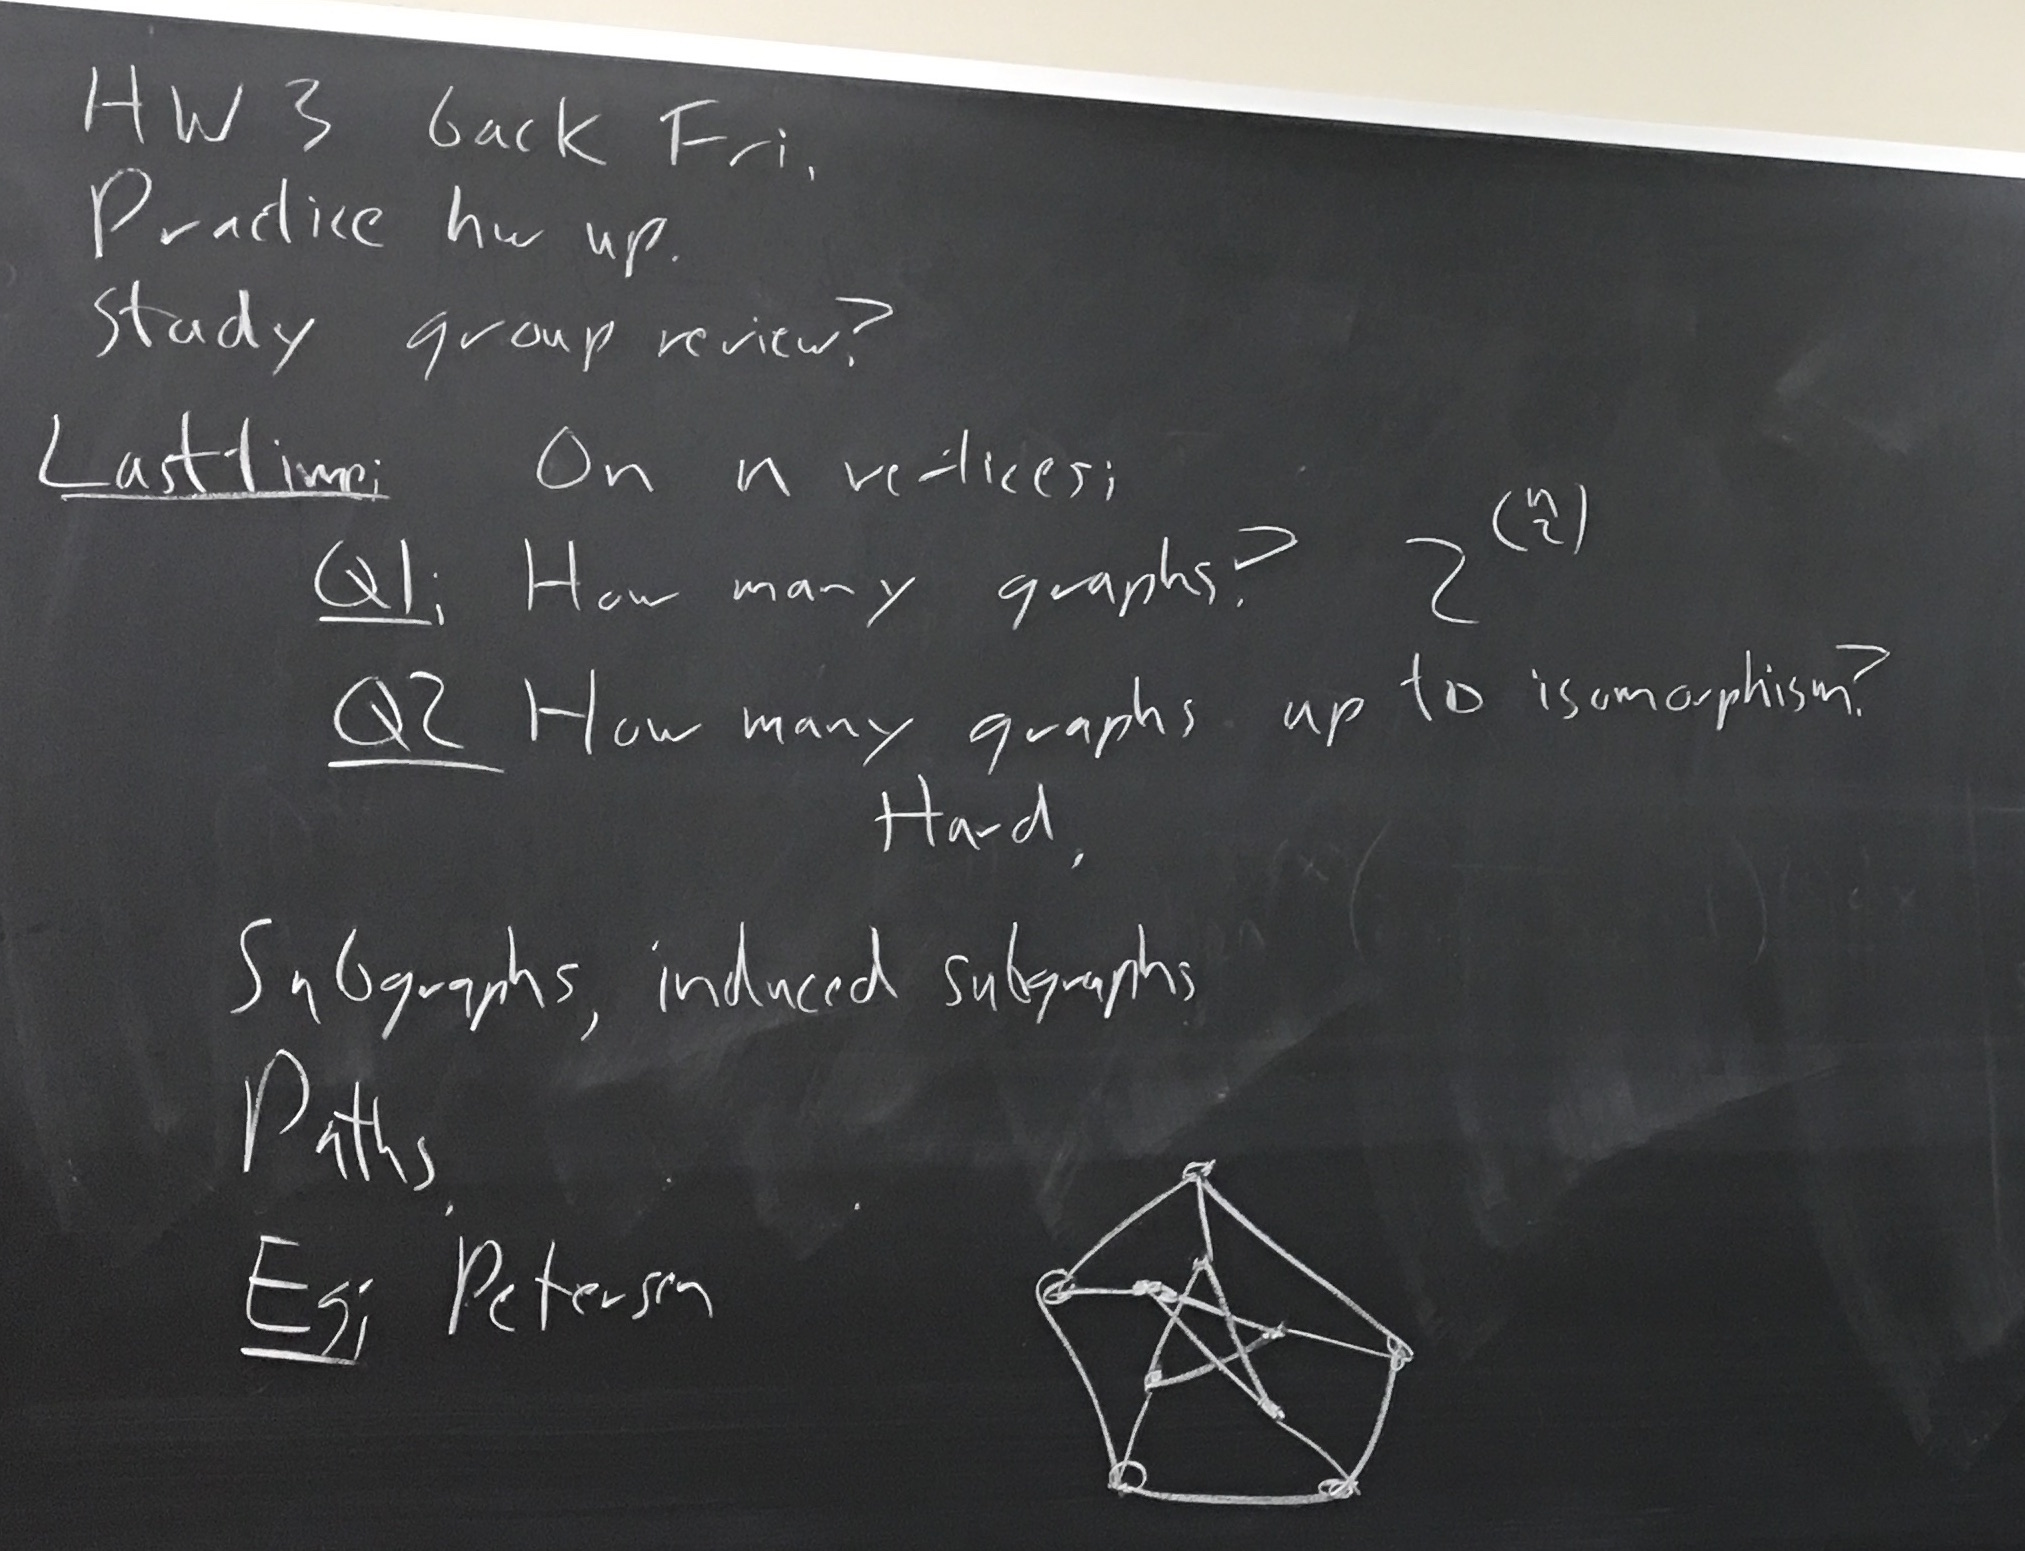 HW 3 back Fri.
Practice hw up.
Study group review?
Last time: On n vertices:
Q1: How many graphs? 2^(n 2)
Q2 How many graphs up to isomorphism?
Hard.
Subgraphs, induced subgraphs
Paths.
Eg: Petersen